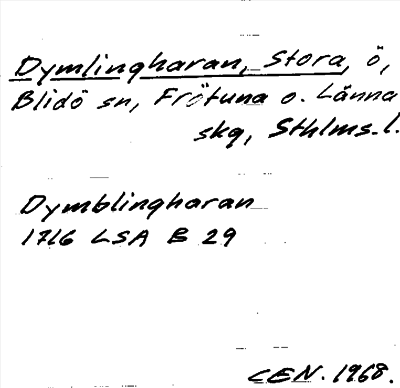 Dymlingharan, Stora, ö,
Blidö sn, Frötuna o. Länna
skg, Sthlms. l.
Dymblingharan
1716 LSA B 29
CEN. 1968.